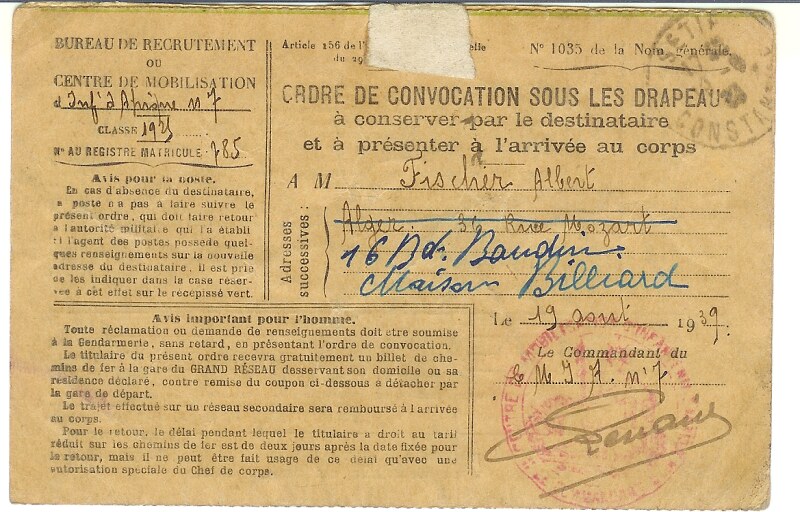 BUREAU DE RECRUTEMENT
OU
CENTRE DE MOBILISATION
d' Inf d'Afrique n° 7
CLASSE 1925
N° AU REGISTRE MATRICULE 785
Avis pour la poste.
En cas d'absence du destinataire,
la poste n'a pas à faire suivre le
présent ordre, qui doit faire retour
à l'autorité militaire qui l'a établi
si l'agent des postes possède quel-
ques renseignements sur la nouvelle
adresse du destinataire, il est prié
de les indiquer dans la case réser-
vée à cet effet sur le récépissé vert.
Article 156 de l'
du 29
N° 1035 de la Nom générale.
ORDRE DE CONVOCATION SOUS LES DRAPEAU
à conserver par le destinataire
et à présenter à l'arrivée au corps
A M Fischer Albert
Adresses successives:
Alger. 36 Rue Mozart
16 Bd. Baudin.
Maison Billiard
Avis important pour l'homme.
Toute réclamation ou demande de renseignements doit être soumise
à la Gendarmerie, sans retard, en présentant l'ordre de convocation.
Le titulaire du présent ordre recevra gratuitement un billet de che-
mins de fer à la gare du GRAND RÉSEAU desservant son domicile ou sa
résidence déclaré, contre remise du coupon ci-dessous à détacher par
la gare de départ.
Le trajet effectué sur un réseau secondaire sera remboursé à l'arrivée
au corps.
Pour le retour, le délai pendant lequel le titulaire a droit au tarif
réduit sur les chemins de fer est de deux jours après la date fixée pour
le retour, mais il ne peut être fait usage de ce délai qu'avec une
autorisation spéciale du Chef de corps.
Le 19 août 1939.
Le Commandant du
C M I A. n° 7
SETIF
CONSTAN